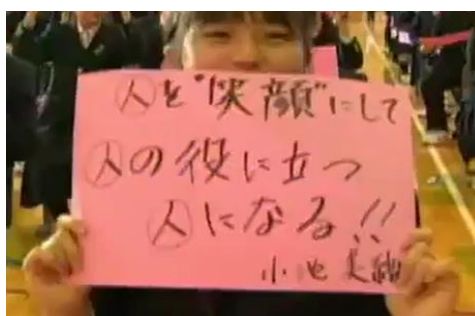 人を"笑顔"にして
人の役に立つ
人になる!!
小池 美